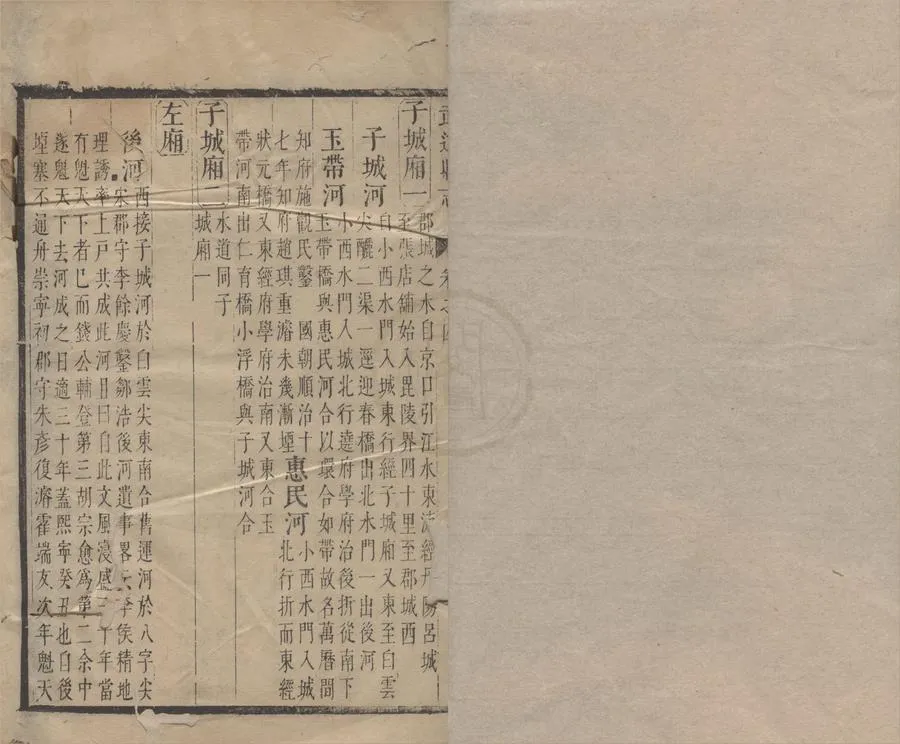 武進縣志
卷之四
子城廂一
郡城之水自京口引江水東流經丹陽呂城
至張店舖始入毘陵界四十里至郡城西
子城河
自小西水門入城東行經子城廂又東至白雲
尖釃二渠一逕迎春橋出北水門一出後河
玉帶河
小西水門入城北行遶府學府治後折從南下
玉帶橋與惠民河合以環合如帶故名萬曆間
知府施觀民鑿 國朝順治十
七年知府趙琪重濬未幾漸堙
惠民河
小西水門入城
北行折而東經
狀元橋又東經府學府治南又東合玉
帶河南出仁育橋小浮橋與子城河合
子城廂二
水道同子
城廂一
左廂
後河
西接子城河於白雲尖東南合舊運河於八字尖
宋郡守李餘慶鑿鄒浩後河遺事畧云李侯精地
理誘率上戶共成此河目曰自此文風寖盛三十年當
有魁天下者已而錢公輔登第三胡宗愈為第二余中
遂魁天下去河成之日適三十年蓋熙寧癸丑也自後
堙塞不通舟崇寧初郡守朱彥復濬霍端友次年魁天